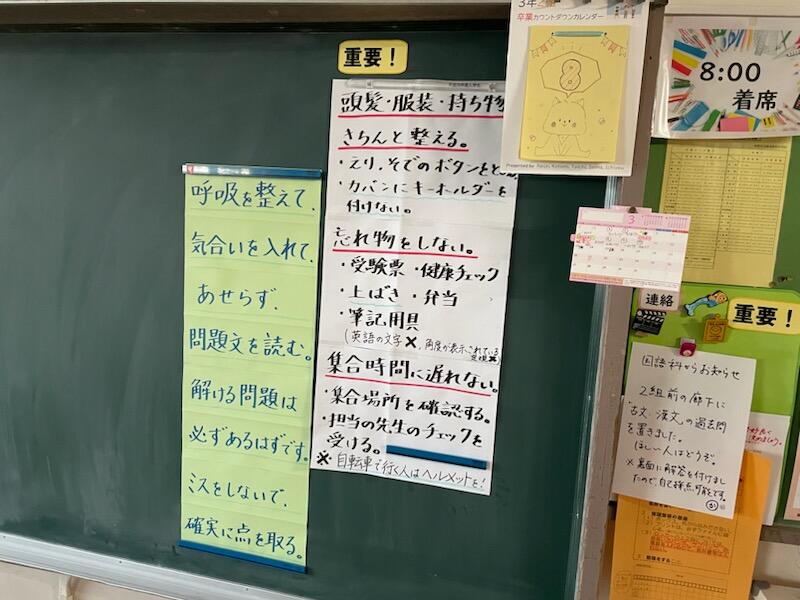 呼吸を整えて、
気合いを入れて、
あせらず、
問題文を読む。
解ける問題は
必ずあるはずです。
ミスをしないで、
確実に点を取る。
重要！
頭髪・服装・持ち物
きちんと整える。
・えり、そでのボタンをと
・カバンにキーホルダーを
付けない。
忘れ物をしない。
・受験票・健康チェック
・上ばき・弁当
・筆記用具
(英語の文字×、角度が表示されている
集合時間に遅れない。
・集合場所を確認する。
・担当の先生のチェックを
受ける。
※自転車で行く人はヘルメットを！
3年2
卒業カウントダウンカレンダー
8
8:00
着席
3
連絡
重要！
国語科からお知らせ
2組前の廊下に
「古文・漢文」の過去問
を置きました。
ほしい人はどうぞ。
※裏面に解答を付けまし
たので、自己採点可能です。